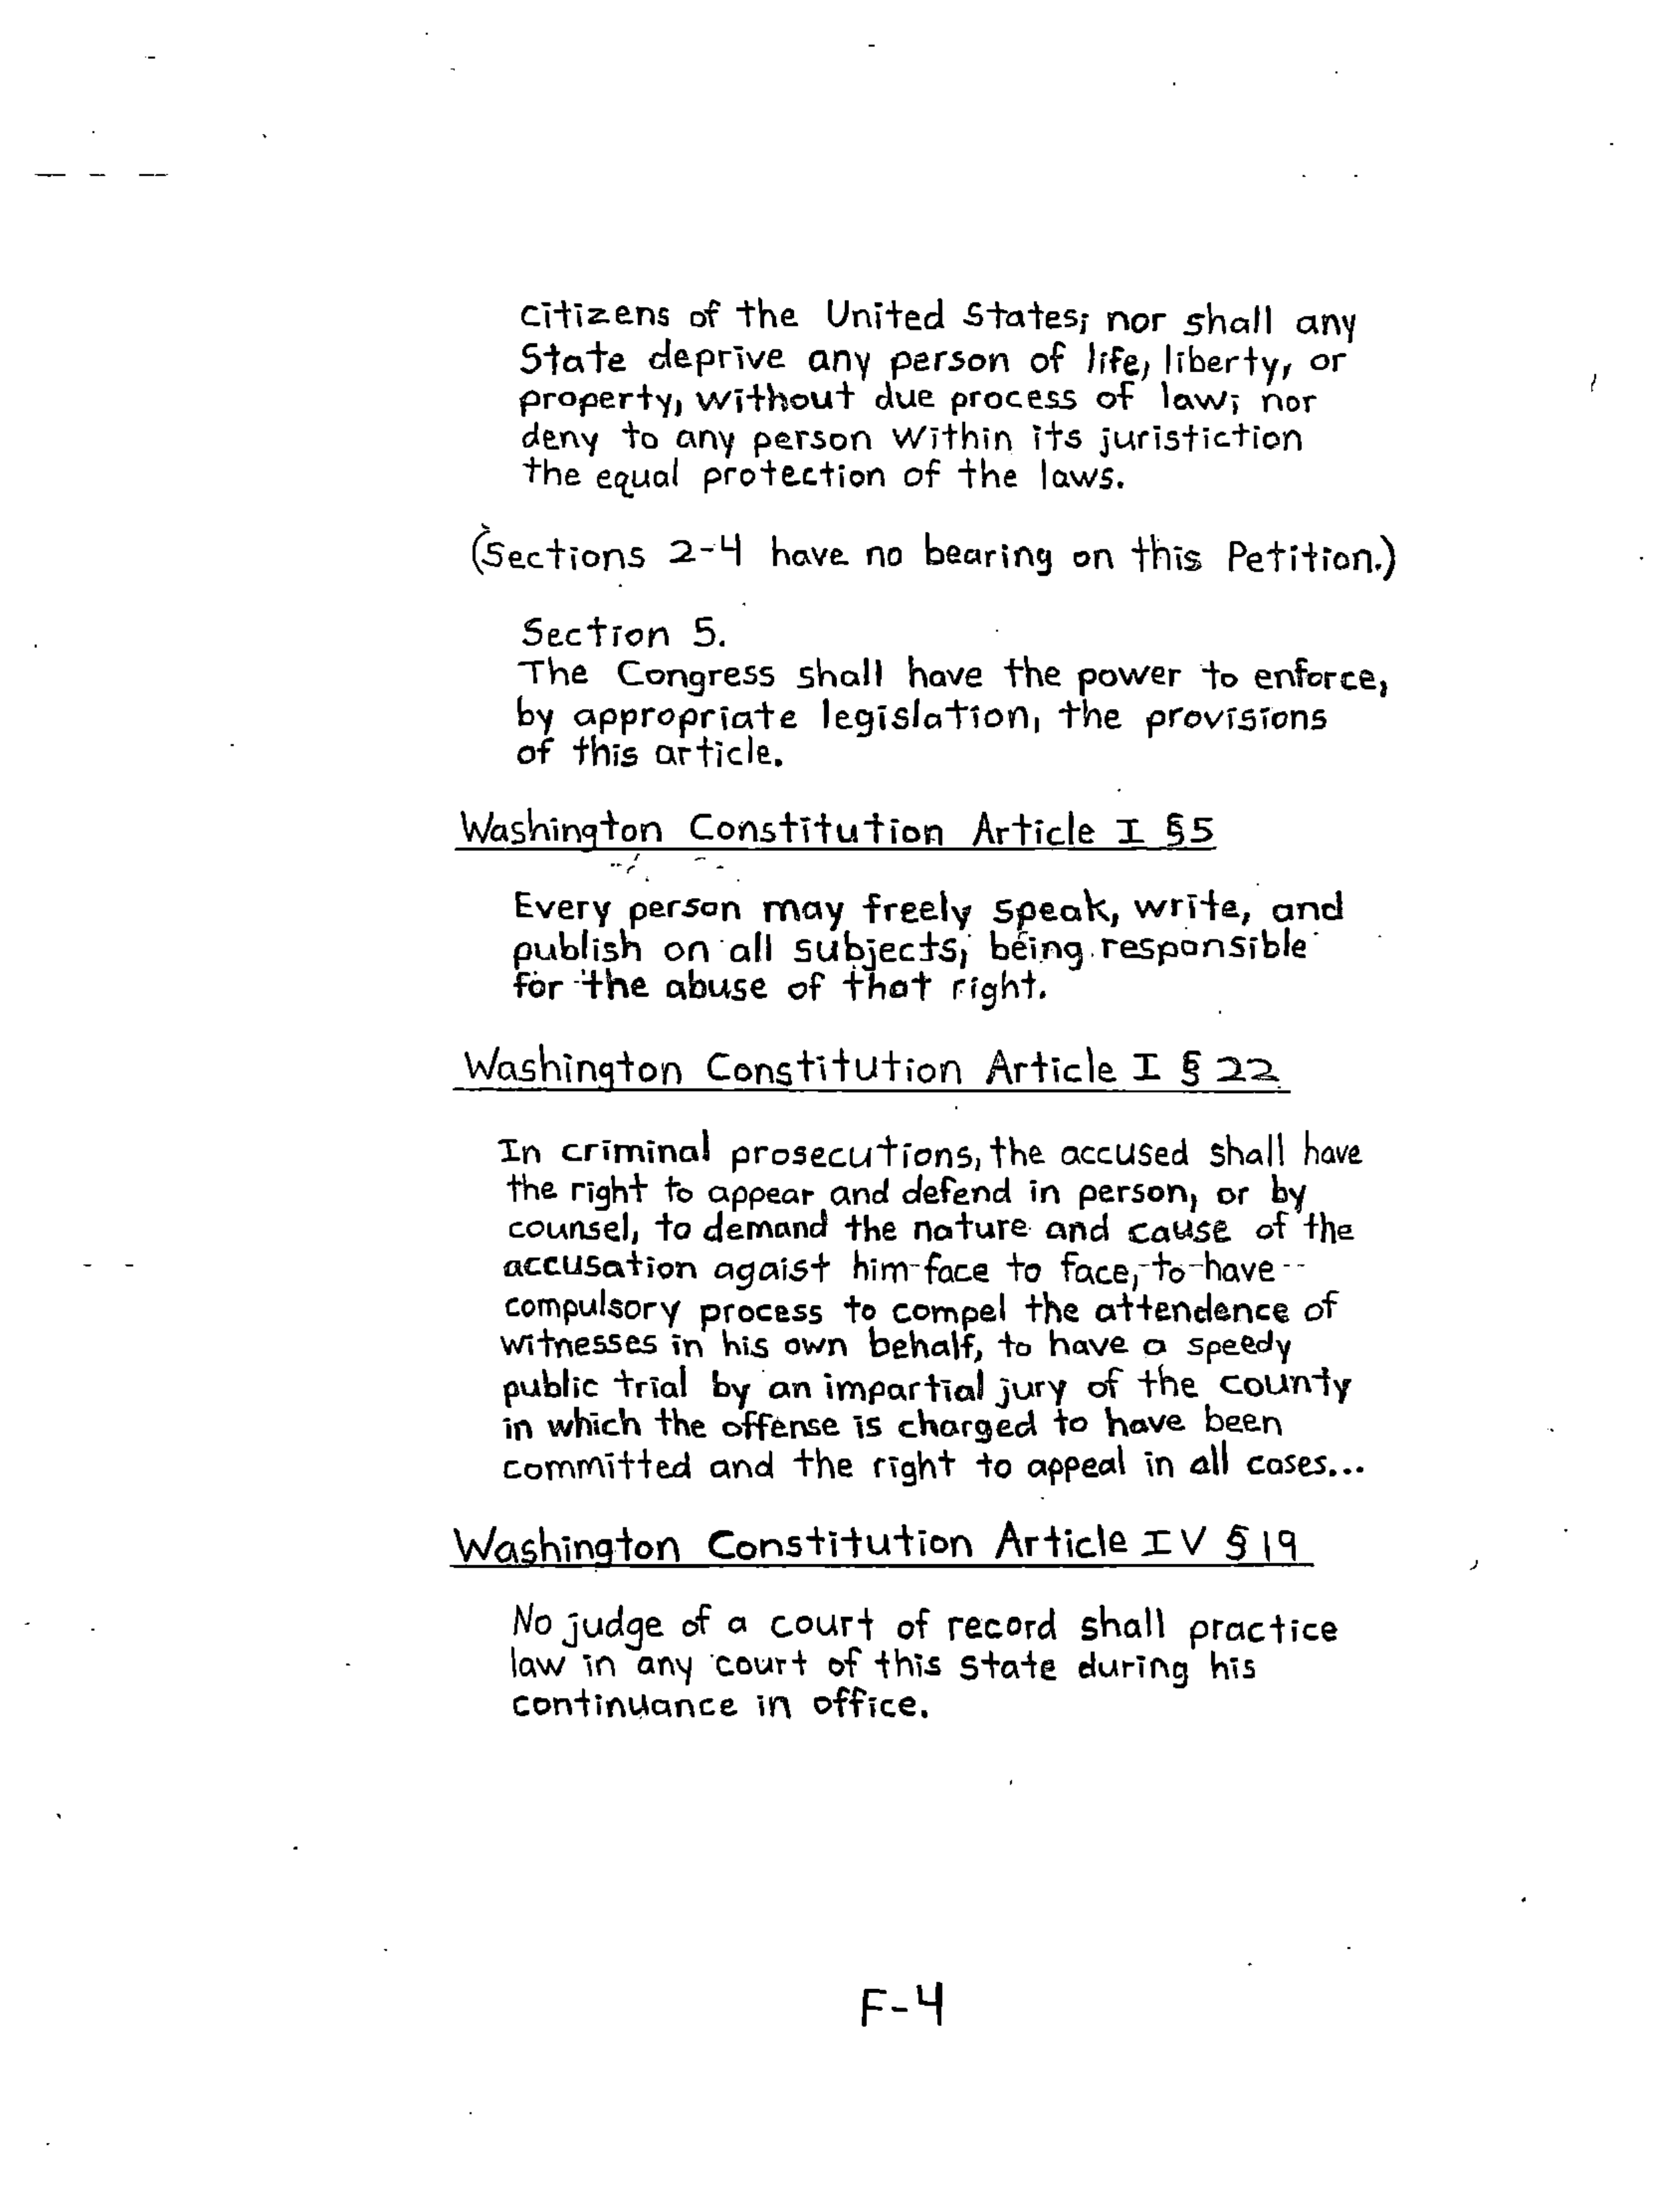 citizens of the United States; nor shall any
State deprive any person of life, liberty, or
property, without due process of law; nor
deny to any person within its juristiction
the equal protection of the laws.
(Sections 2-4 have no bearing on this Petition.)
Section 5.
The Congress shall have the power to enforce,
by appropriate legislation, the provisions
of this article.
Washington Constitution Article I §5
Every person may freely speak, write, and
publish on all subjects, being responsible
for the abuse of that right.
Washington Constitution Article I § 22
In criminal prosecutions, the accused shall have
the right to appear and defend in person, or by
counsel, to demand the nature and cause of the
accusation agaist him face to face, to have
compulsory process to compel the attendence of
witnesses in his own behalf, to have a speedy
public trial by an impartial jury of the county
in which the offense is charged to have been
committed and the right to appeal in all cases...
Washington Constitution Article IV § 19
No judge of a court of record shall practice
law in any court of this state during his
continuance in office.
F-4